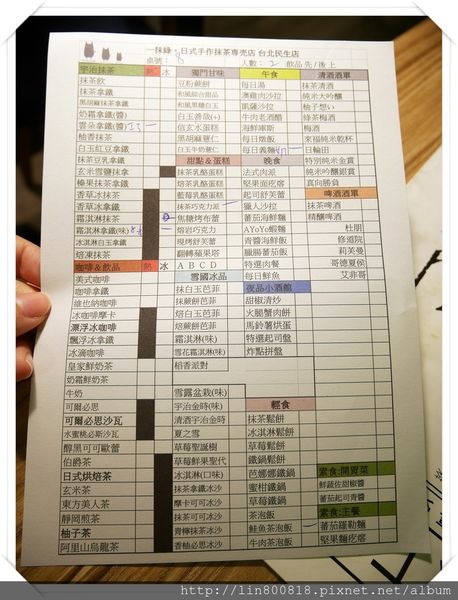 一抹綠 日式手作抹茶專売店 台北民生店
桌號： 8 人數：2 飲品 先/後 上
宇治抹茶 熱 冰 獨門甘味 午食 清酒酒單
抹茶飲 豆粉蕨餅 每日湯 抹茶清酒
抹茶拿鐵 和風綜合甜品 澳雞肉沙拉 純米大吟釀
黑胡麻抹茶拿鐵 和風黑糖白玉 凱薩沙拉 柚子想い
奶霜拿鐵(醬) 白玉善哉(+) 牛肉老酒醋 綠茶梅酒
雲朵拿鐵(醬) 信玄水蛋糕 海鮮庫斯 梅酒
柚香抹茶 黑胡麻薏仁 每日燉飯 來福純米乾杯
白玉紅豆拿鐵 白玉牛奶薏仁 每日義麵 日輪田
抹茶豆乳拿鐵 甜點＆蛋糕 晚食 特別純米金賞
玄米雪鹽抹拿 抹茶乳酪蛋糕 法式肉派 純米吟釀銀賞
榛果抹茶拿鐵 焙茶乳酪蛋糕 堅果面疙瘩 真向勝負
香草冰抹茶 藍莓乳酪蛋糕 起司舒芙蕾 啤酒酒單
香草冰拿鐵 抹茶巧克力派 獵人沙拉 抹茶啤酒
霜淇淋抹茶 焦糖烤布蕾 蕃茄海鮮麵 精釀啤酒
霜淇淋拿鐵(味) 熔岩巧克力 AYoYo蝦麵 杜朋
冰淇淋白玉拿鐵 現烤舒芙蕾 青醬海鮮飯 修道院
焙凍抹茶 翻轉蘋果塔 臘腸蕃茄飯 莉芙曼
咖啡＆飲品 熱 冰 A B C D 特選肉餐 哥德夏侯
美式咖啡 雪國冰品 每日鮮魚 艾菲哥
咖啡拿鐵 抹白玉芭菲 夜品小酒館
維也納咖啡 抹蕨餅芭菲 甜椒清炒
冰咖啡摩卡 焙白玉芭菲 火腿蟹肉餅
漂浮冰咖啡 焙蕨餅芭菲 馬鈴薯烘蛋
飄浮冰拿鐵 霜淇淋(味) 特選起司盤
冰滴咖啡 雪花霜淇淋(味) 炸點拼盤
皇家鮮奶茶 稻香派對
奶霜鮮奶茶
牛奶 雪露盆栽(味)
可爾必思 宇治金時(味) 輕食
可爾必思沙瓦 清酒宇治金時 抹茶鬆餅
水蜜桃必斯沙瓦 夏之雪 冰淇淋鬆餅
醇黑可可歐蕾 草莓聖誕樹 鐵鍋鬆餅
伯爵茶 草莓鮮果聖代 芭娜娜鐵鍋 素食:開胃菜
日式烘焙茶 冰淇淋(口味) 蜜柑鐵鍋 鮮蔬佐甜椒醬
玄米茶 抹茶拿鐵冰沙 草莓鐵鍋 蕃茄起司青醬
東方美人茶 摩卡可可冰沙 茶泡飯 素食:主餐
靜岡煎茶 抹茶可可冰沙 鮭魚茶泡飯 蕃茄羅勒麵
柚子茶 青檸抹茶冰沙 牛肉茶泡飯 堅果麵疙瘩
阿里山烏龍茶 香柚必思冰沙
http://lin800818.pixnet.net/album